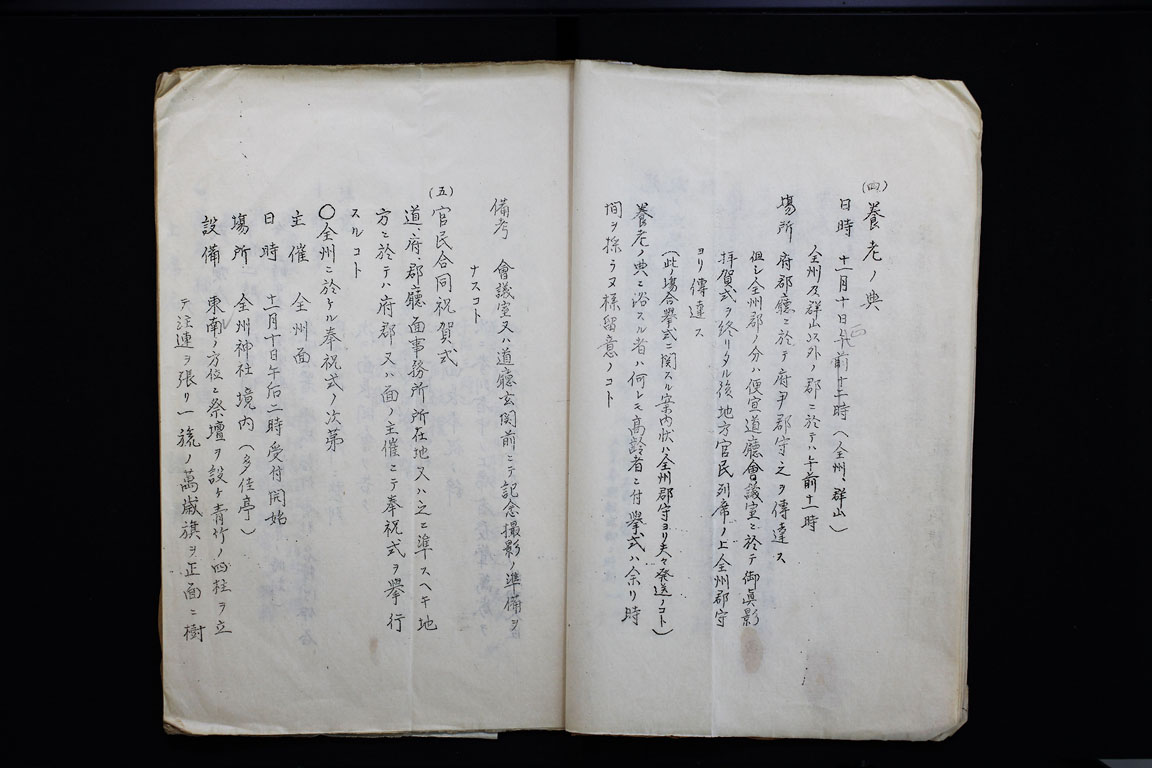 (四)養老ノ典
日時 十一月十日午前十一時(全州、群山)
全州及群山以外ノ郡ニ於テハ午前十一時
場所 府郡廳ニ於テ府尹郡守之ヲ傳達ス
但シ全州郡ノ分ハ便宜道廳會議室ニ於テ御眞影
拝賀式ヲ終リタル後地方官民列席ノ上全州郡守
ヨリ傳達ス
(此ノ場合擧式ニ関スル案内状ハ全州郡守ヨリ夫々発送ノコト)
養老ノ典ニ浴スル者ハ何レモ高齢者ニ付擧式ハ余リ時
間ヲ採ラヌ様留意ノコト
備考 會議室又ハ道廳玄関前ニテ記念撮影ノ準備ヲ
ナスコト
(五)官民合同祝賀式
道、府、郡廳面事務所所在地又ハ之ニ準スヘキ地
方ニ於テハ府郡又ハ面ノ主催ニテ奉祝式ヲ擧行
スルコト
○全州ニ於ケル奉祝式ノ次第
主催 全州面
日時 十一月十日午后二時受付開始
場所 全州神社境内(多佳亭)
設備 東南ノ方位ニ祭壇ヲ設ケ青竹ノ四柱ヲ立
テ注連ヲ張リ一旒ノ萬歳旗ヲ正面ニ樹